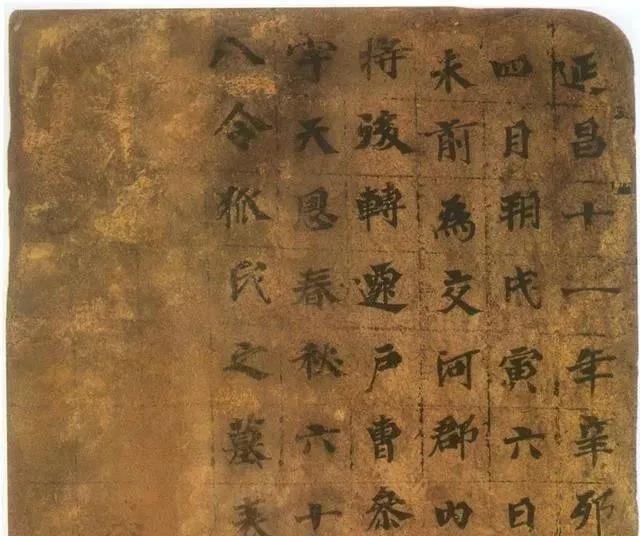 延昌十一年辛卯
四月朔戊寅六日
未前為交河郡內
将後轉遷戶曹叅
字天恩春秋六十
八令狐氏之墓表